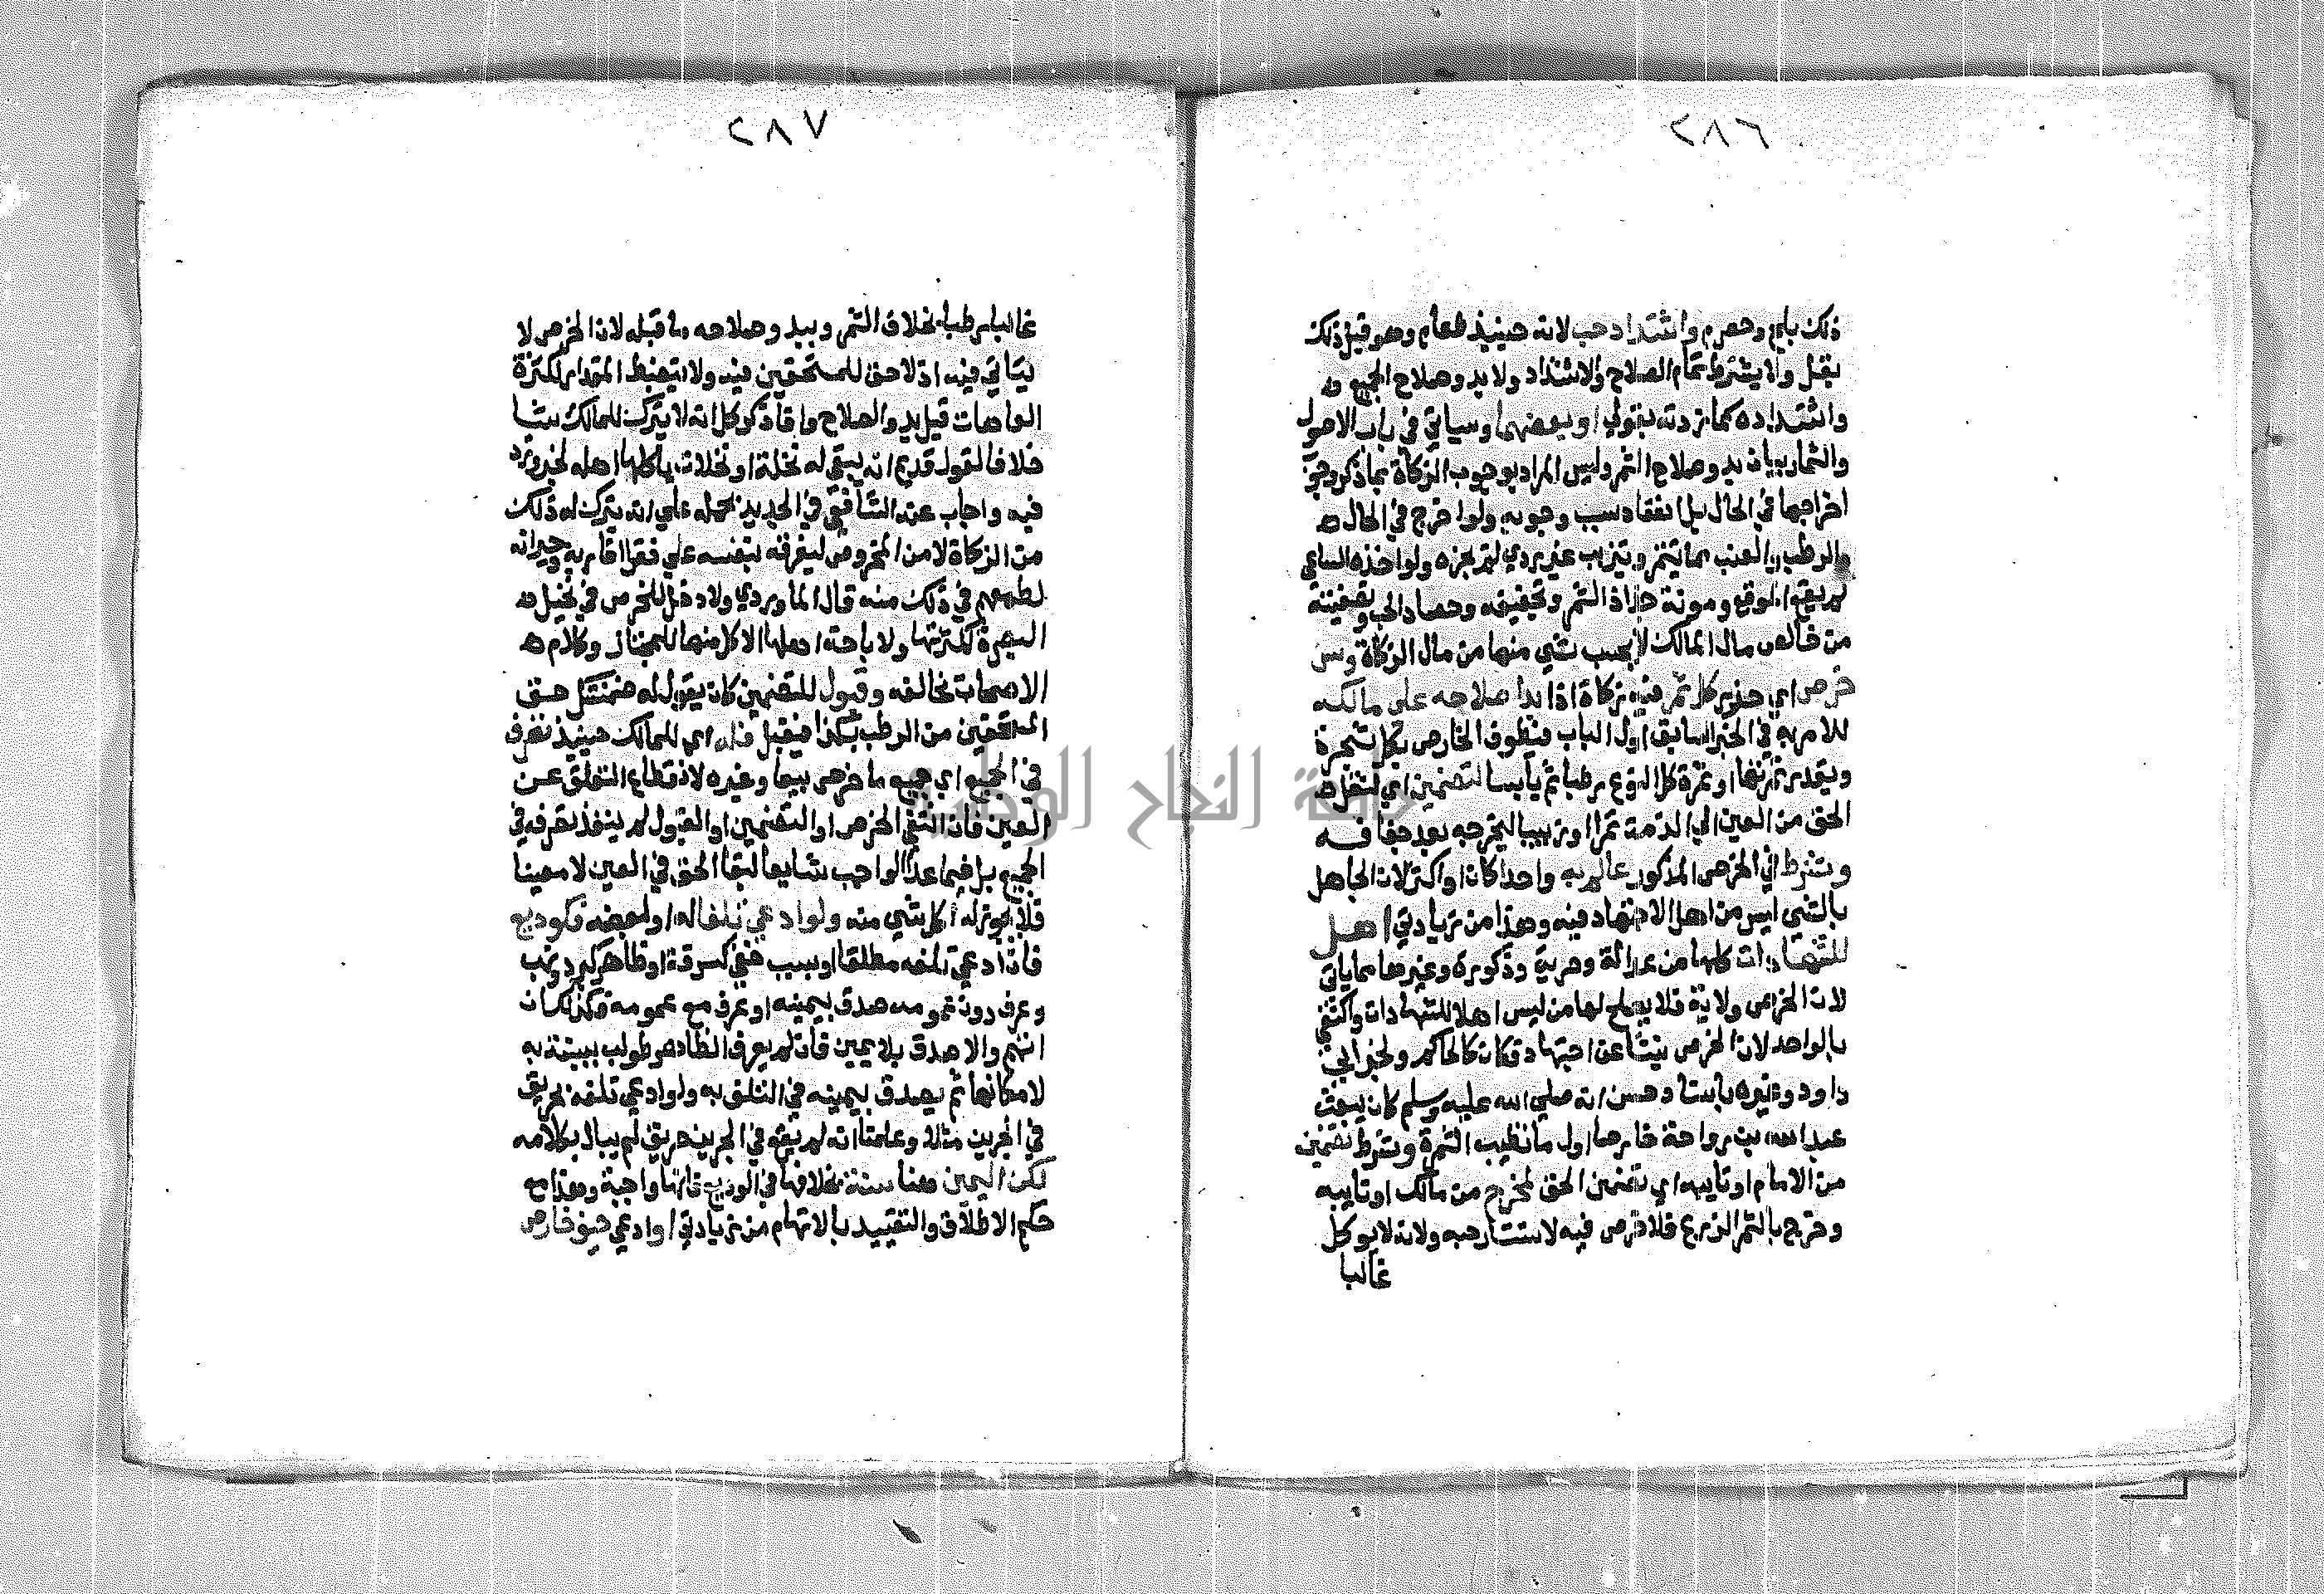 ٢٨٦
ذلك بلح وحصرم واشتداد حب لانه حينيذ طعام وهو قبل ذلك
بقل ولا يشترط تمام الصلاح والاشتداد ولا بدو صلاح الجميع
واشتداده كما زدته بقولي او بعضهما وسياتي في باب الاصول
والثمار بيان بدو صلاح الثمر وليس المراد بوجوب الزكاة بما ذكر وجوب
اخراجها في الحال بل انعقاد سبب وجوبه ولو اخرج في الحال
والرطب والعنب مما يتتمر ويتزبب غير ردي لم يجزه ولو اخذه الساعي
لم يقع الموقع ومونة جذاذ الثمر وتجفيفه وحصاد الحب وتصفيته
من خالص مال المالك لا يحسب شي منها من مال الزكاة وسن
خرص اي حزر كل ثمر فيه زكاة اذا بدا صلاحه على مالكه
للامر به في الخبر السابق اول الباب فيطوف الخارص بكل شجرة
ويقدر ثمرتها او ثمرة كل النوع رطبا ثم يابسا لتضمين اي لنقل
الحق من العين الي الذمة تمرا او زبيبا ليخرجه بعد جفافه
وشرط في الخرص المذكور عالم به واحدا كان او اكثر لان الجاهل
بالشي ليس من اهل الاجتهاد فيه وهذا من زيادتي اهل
للشهادات كلها من عدالة وحرية وذكورة وغيرها مما ياتي
لان الخرص ولاية فلا يصلح لها من ليس اهلا للشهادات واكتفي
بالواحد لان الخرص ينشا عن اجتهاد فكان كالحاكم ولخبر ابي
داود وغيره باسناد حسن انه صلي الله عليه وسلم كان يبعث
عبد الله بن رواحة خارصا اول ما تطيب الثمرة وشرط تضمين
من الامام او نايبه اي تضمين الحق لمخرج من مالك او نايبه
وخرج بالثمر الزرع فلا خرص فيه لاستتار حبه ولانه لا يوكل
غالبا
٢٨٧
غالبا رطبا بخلاف الثمر وببدو صلاحه ما قبله لان الخرص لا
يتاتي فيه اذ لا حق للمستحقين فيه ولا ينضبط المقدار لكثرة
العاهات قبل بدو الصلاح وافاد ذكر كل انه لا يترك للمالك شيا
خلافا لقول قديم انه يبقي له نخلة او نخلات ياكلها اهله لخبر ورد
فيه واجاب عنه الشافعي في الجديد بحمله علي انه يترك له ذلك
من الزكاة لا من المخروص ليفرقه بنفسه علي فقرا اقاربه وجيرانه
لطمعهم في ذلك منه قال الماوردي ولا دخل للخرص في نخيل
البصرة لكثرتها ولاباحة اهلها الاكل منها للمجتاز وكلام
الاصحاب يخالفه وقبول للتضمين كان يقول له ضمنتك حق
المستحقين من الرطب بكذا فيقبل فله اي للمالك حينيذ تصرف
في الجميع اي جميع ما خرص بيعا وغيره لانقطاع التعلق عن
العين فان انتفي الخرص او التضمين او القبول لم ينفذ تصرفه في
الجميع بل فيما عدا الواجب شايعا لبقا الحق في العين لا معينا
فلا يجوز له اكل شي منه ولو ادعي تلفا له او لبعضه فكوديع
فان ادعي تلفه مطلقا او بسبب خفي كسرقة او ظاهر كبرد ونهب
وعرف دون عمومه صدق بيمينه او عرف مع عمومه فكذلك ان
اتهم والا صدق بلا يمين فان لم يعرف الظاهر طولب ببينة به
لامكانها ثم يصدق بيمينه في التلف به ولو ادعي تلفه بحريق
في الجرين مثلا وعلمنا انه لم يقع في الجرين حريق لم يبال بكلامه
لكن اليمين هنا سنة بخلافها في الوديع فانها واجبة وهذا مع
حكم الاطلاق والتقييد بالاتهام من زيادتي او ادعي حيف خارص